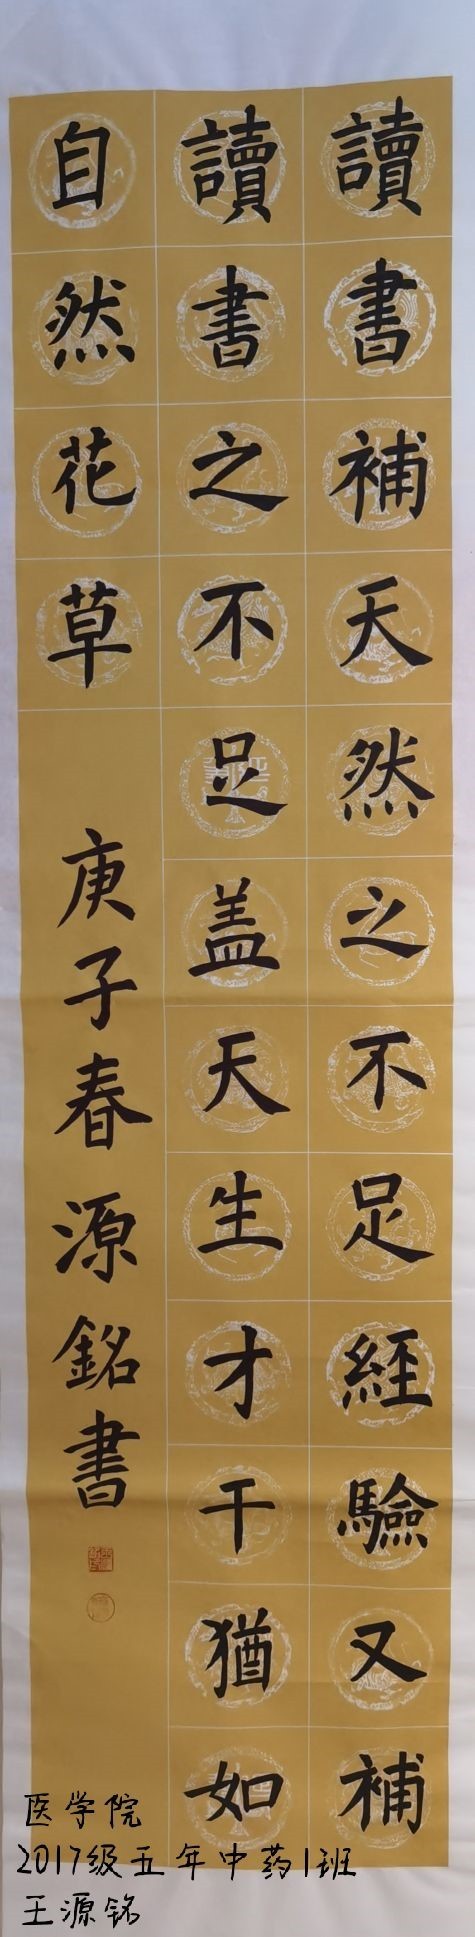 讀書補天然之不足經驗又補
讀書之不足盖天生才干猶如
自然花草
庚子春源銘書
医学院
2017级五年中药1班
王源铭